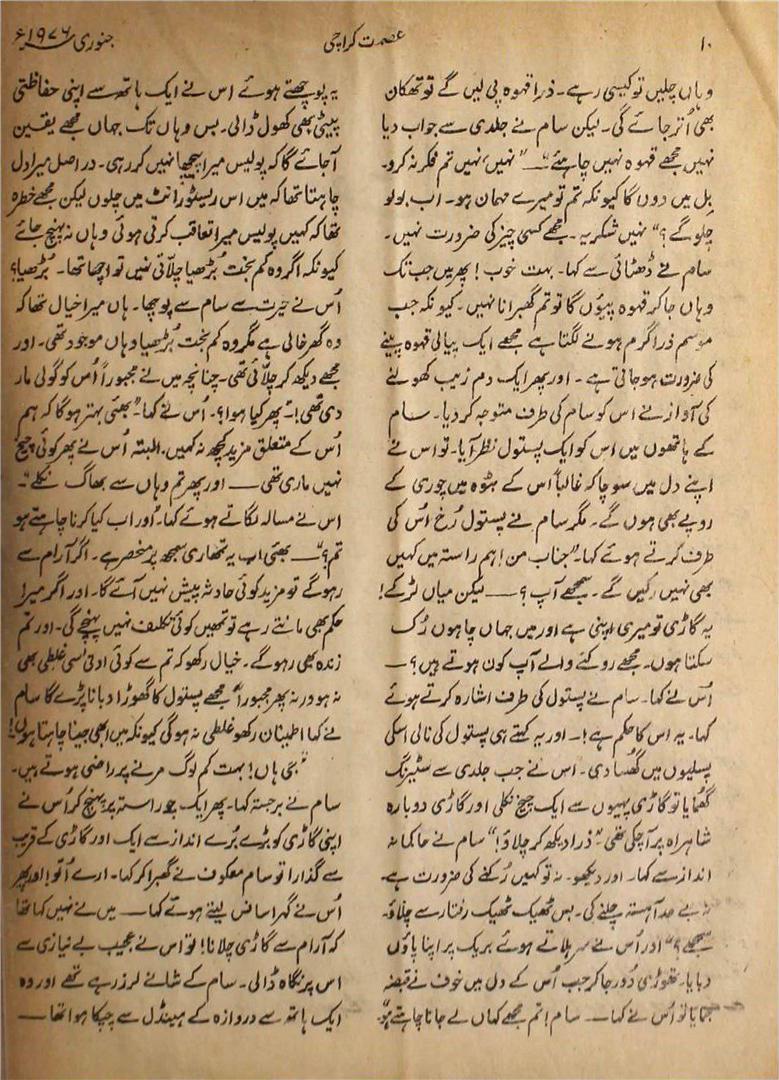 ۱۰
عصمت کراچی
جنوری ۱۹۷۶ء
وہاں چلیں تو کیسی رہے۔ ذرا قہوہ پی لیں گے تو تھکان
بھی اُتر جائے گی۔ لیکن سام نے جلدی سے جواب دیا
نہیں مجھے قہوہ نہیں چاہئے“۔ ”نہیں، نہیں تم فکر نہ کرو۔
بِل میں دوں گا کیونکہ تم تو میرے مہمان ہو۔ اب بولو
چلو گے؟“ نہیں شکریہ۔ مجھے کسی چیز کی ضرورت نہیں۔
سام نے ڈھٹائی سے کہا۔ بہت خوب! پھر میں جب تک
وہاں جا کر قہوہ پیئوں گا تو تم گھبرانا نہیں۔ کیونکہ جب
موسم ذرا گرم ہونے لگتا ہے مجھے ایک پیالی قہوہ پینے
کی ضرورت ہو جاتی ہے۔ اور پھر ایک دم زیب کھولنے
کی آواز نے اس کو سام کی طرف متوجہ کر دیا۔ سام
کے ہاتھوں میں اس کو ایک پستول نظر آیا۔ تو اس نے
اپنے دل میں سوچا کہ غالباً اس کے بٹوہ میں چوری کے
روپے بھی ہوں گے۔ مگر سام نے پستول رُخ اُس کی
طرف کرتے ہوئے کہا۔ ”جناب من! ہم راستہ میں کہیں
بھی نہیں رکیں گے۔ سمجھے آپ؟ —— لیکن میاں لڑکے!
یہ گاڑی تو میری اپنی ہے اور میں جہاں چاہوں رُک
سکتا ہوں۔ مجھے روکنے والے آپ کون ہوتے ہیں؟ —
اُس نے کہا۔ سام نے پستول کی طرف اشارہ کرتے ہوئے
کہا۔ یہ اس کا حکم ہے!۔ اور یہ کہتے ہی پستول کی نالی اسکی
پسلیوں میں گھسا دی۔ اس نے جب جلدی سے سٹیرنگ
گھمایا تو گاڑی پہیوں سے ایک چیخ نکلی اور گاڑی دوبارہ
شاہراہ پر آچکی تھی۔ ”ذرا دیکھ کر چلاؤ!“ سام نے حاکمانہ
انداز سے کہا۔ اور دیکھو۔ نہ تو کہیں رُکنے کی ضرورت ہے۔
نہ بے حد آہستہ چلنے کی۔ بس ٹھیک ٹھیک رفتار سے چلاؤ۔
سمجھے؟“ اور اُس نے سر ہلاتے ہوئے بریک پر اپنا پاؤں
دبایا۔ تھوڑی دُور جا کر جب اُس کے دل میں خوف نے قبضہ
جمایا تو اُس نے کہا — سام! تم مجھے کہاں لے جانا چاہتے ہو“
یہ پوچھتے ہوئے اس نے ایک ہاتھ سے اپنی حفاظتی
پیٹی بھی کھول ڈالی۔ بس وہاں تک جہاں مجھے یقین
آ جائے گا کہ پولیس میرا پیچھا نہیں کر رہی۔ دراصل میرا دل
چاہتا تھا کہ میں اس ریسٹورانٹ میں چلوں لیکن مجھے خطرہ
تھا کہ کہیں پولیس میرا تعاقب کرتی ہوئی وہاں نہ پہنچ جائے
کیونکہ اگر وہ کم بخت بُڑھیا چلّاتی نہیں تو اچھا تھا۔ بُڑھیا؟
اُس نے حیرت سے سام سے پوچھا۔ ہاں میرا خیال تھا کہ
وہ گھر خالی ہے مگر وہ کم بخت بُڑھیا وہاں موجود تھی۔ اور
مجھے دیکھ کر چلّائی تھی۔ چنانچہ میں نے مجبوراً اُس کو گولی مار
دی تھی!۔ پھر کیا ہوا؟۔ اُس نے کہا۔ ”بھئی بہتر ہوگا کہ ہم
اُس کے متعلق مزید کچھ نہ کہیں۔ البتہ اُس نے پھر کوئی چیخ
نہیں ماری تھی — اور پھر تم وہاں سے بھاگ نکلے“۔
اس نے مسالہ لگاتے ہوئے کہا۔ اور اب کیا کرنا چاہتے ہو
تم؟“ — بھئی اب یہ تمھاری سمجھ پر منحصر ہے۔ اگر آرام سے
رہو گے تو مزید کوئی حادثہ پیش نہیں آئے گا۔ اور اگر میرا
حکم بھی مانتے رہے تو تمھیں کوئی تکلیف نہیں پہنچے گی۔ اور تم
زندہ بھی رہو گے۔ خیال رکھو کہ تم سے کوئی ادنیٰ سی غلطی بھی
نہ ہو ورنہ پھر مجبوراً مجھے پستول کا گھوڑا دبانا پڑے گا سام
نے کہا اطمینان رکھو غلطی نہ ہوگی کیونکہ میں ابھی جینا چاہتا ہوں!
”جی ہاں! بہت کم لوگ مرنے پر راضی ہوتے ہیں۔
سام نے برجستہ کہا۔ پھر ایک چو راستہ پر پہنچ کر اُس نے
اپنی گاڑی کو بڑے بُرے انداز سے ایک اور گاڑی کے قریب
سے گذارا تو سام معکوف نے گھبرا کر کہا۔ ارے اُتو! اور پھر
اُس نے گہرا سانس لیتے ہوئے کہا — میں نے نہیں کہا تھا
کہ آرام سے گاڑی چلانا! تو اس نے عجیب بے نیازی سے
اس پر نگاہ ڈالی۔ سام کے شانے لرز رہے تھے اور وہ
ایک ہاتھ سے دروازہ کے ہینڈل سے چپکا ہوا تھا —